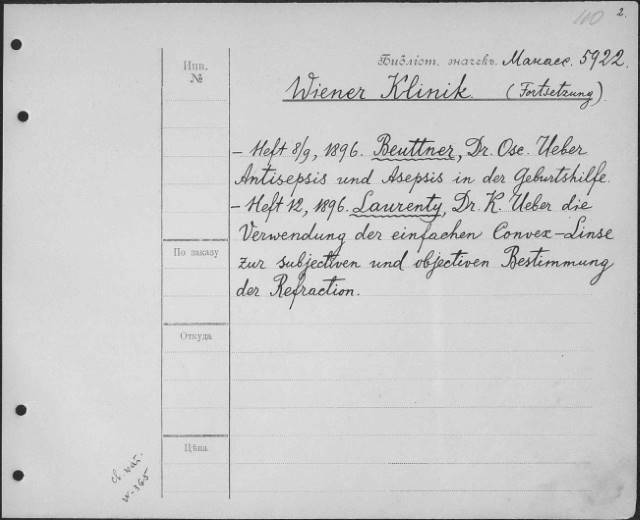 110 2.
Инв.
№
Библіот. значекъ. Манасс. 5922.
Wiener Klinik. (Fortsetzung).
– Heft 8/9, 1896. Beuttner, Dr. Osc. Ueber
Antisepsis und Asepsis in der Geburtshilfe.
– Heft 12, 1896. Laurenty, Dr. K. Ueber die
Verwendung der einfachen Convex-Linse
zur subjectiven und objectiven Bestimmung
der Refraction.
По заказу
Откуда
Цѣна